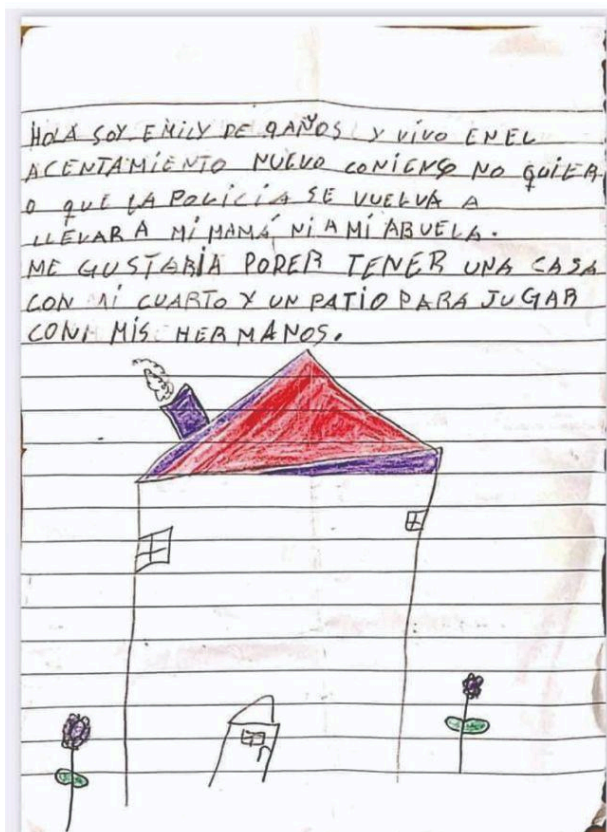 HOLA SOY EMILY DE 9 AÑOS Y VIVO EN EL
ACENTAMIENTO NUEVO COMIENSO NO QUIER
O QUE LA POLICÍA SE VUELVA A
LLEVAR A MI MAMÁ NI A MI ABUELA.
ME GUSTARÍA PODER TENER UNA CASA
CON MI CUARTO Y UN PATIO PARA JUGAR
CON MIS HERMANOS.